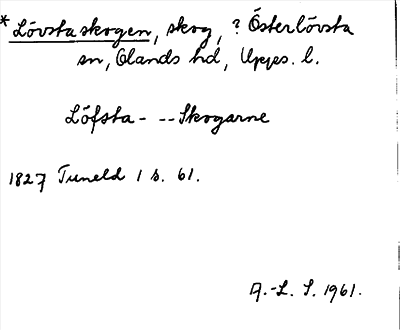 * Lövstaskogen, skog, ? Österlövsta
sn, Olands hd, Upps. l.
Löfsta- -- Skogarne
1827 Tuneld 1 s. 61.
A.-L. S. 1961.